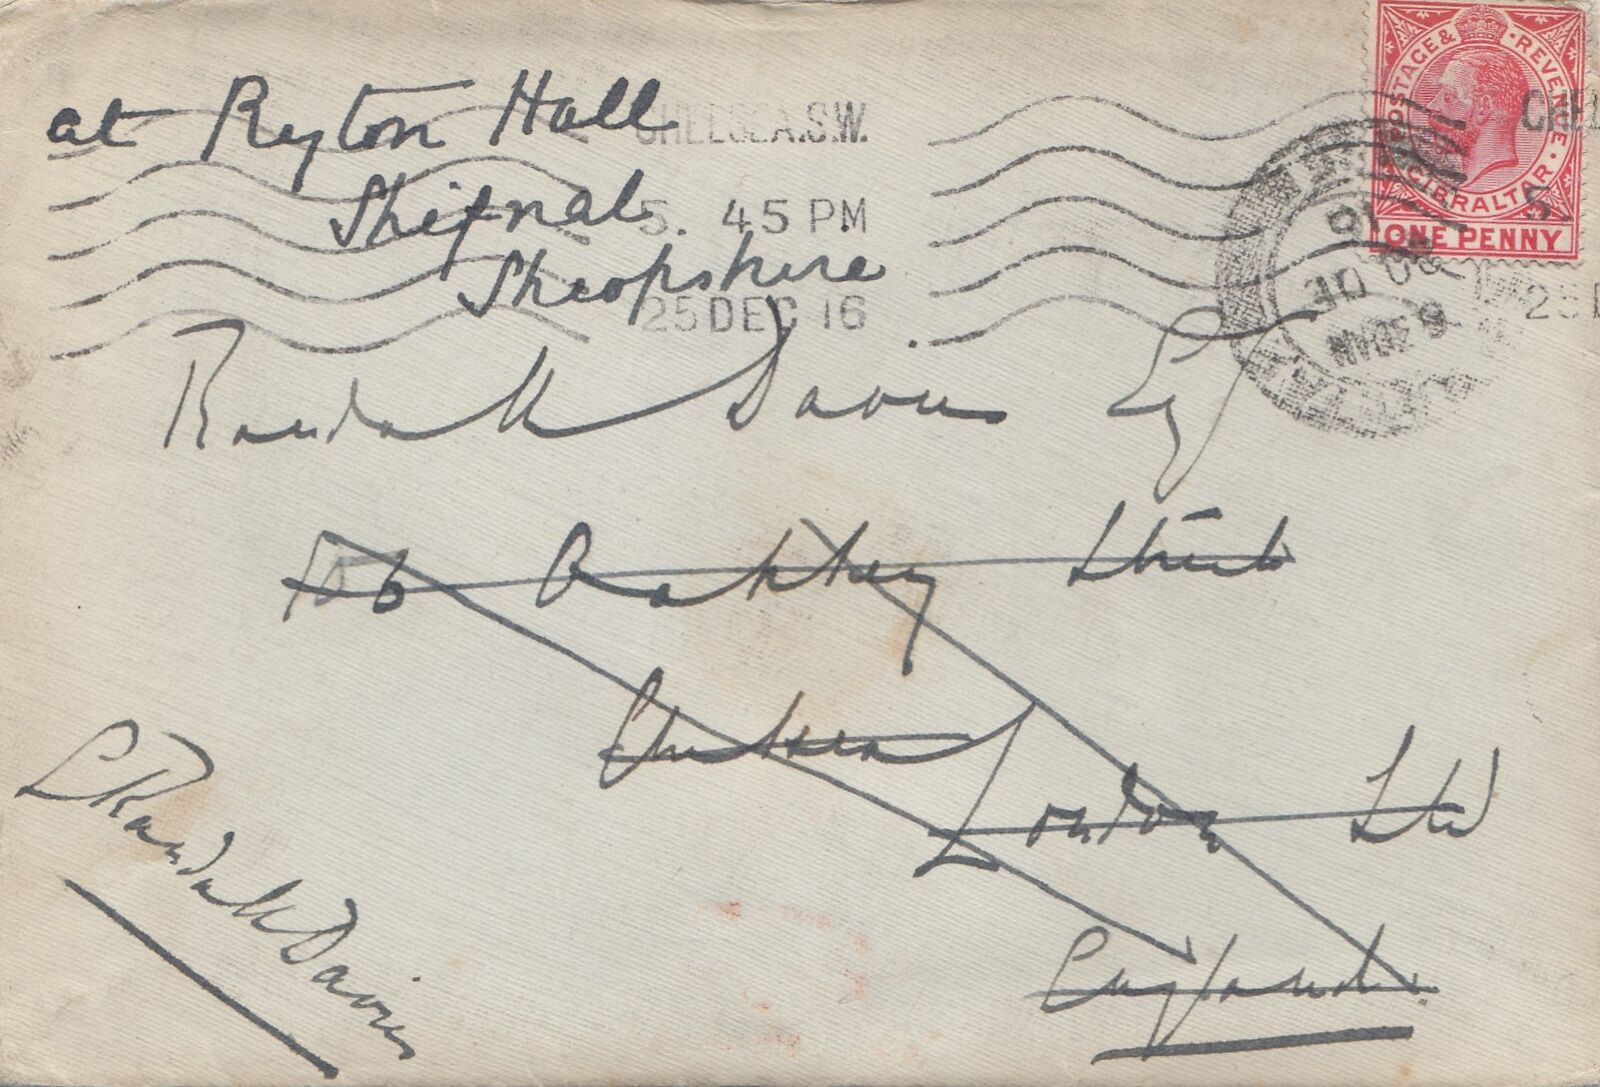 at Ryton Hall
Shifnal
Shropshire
CHELSEA.S.W.
5. 45 PM
25 DEC 16
POSTAGE & REVENUE
GIBRALTAR
ONE PENNY
CHEL
5.
25 D
Randall Davies Esq
106 Oakley Street
Chelsea
London SW
England
Randall Davies